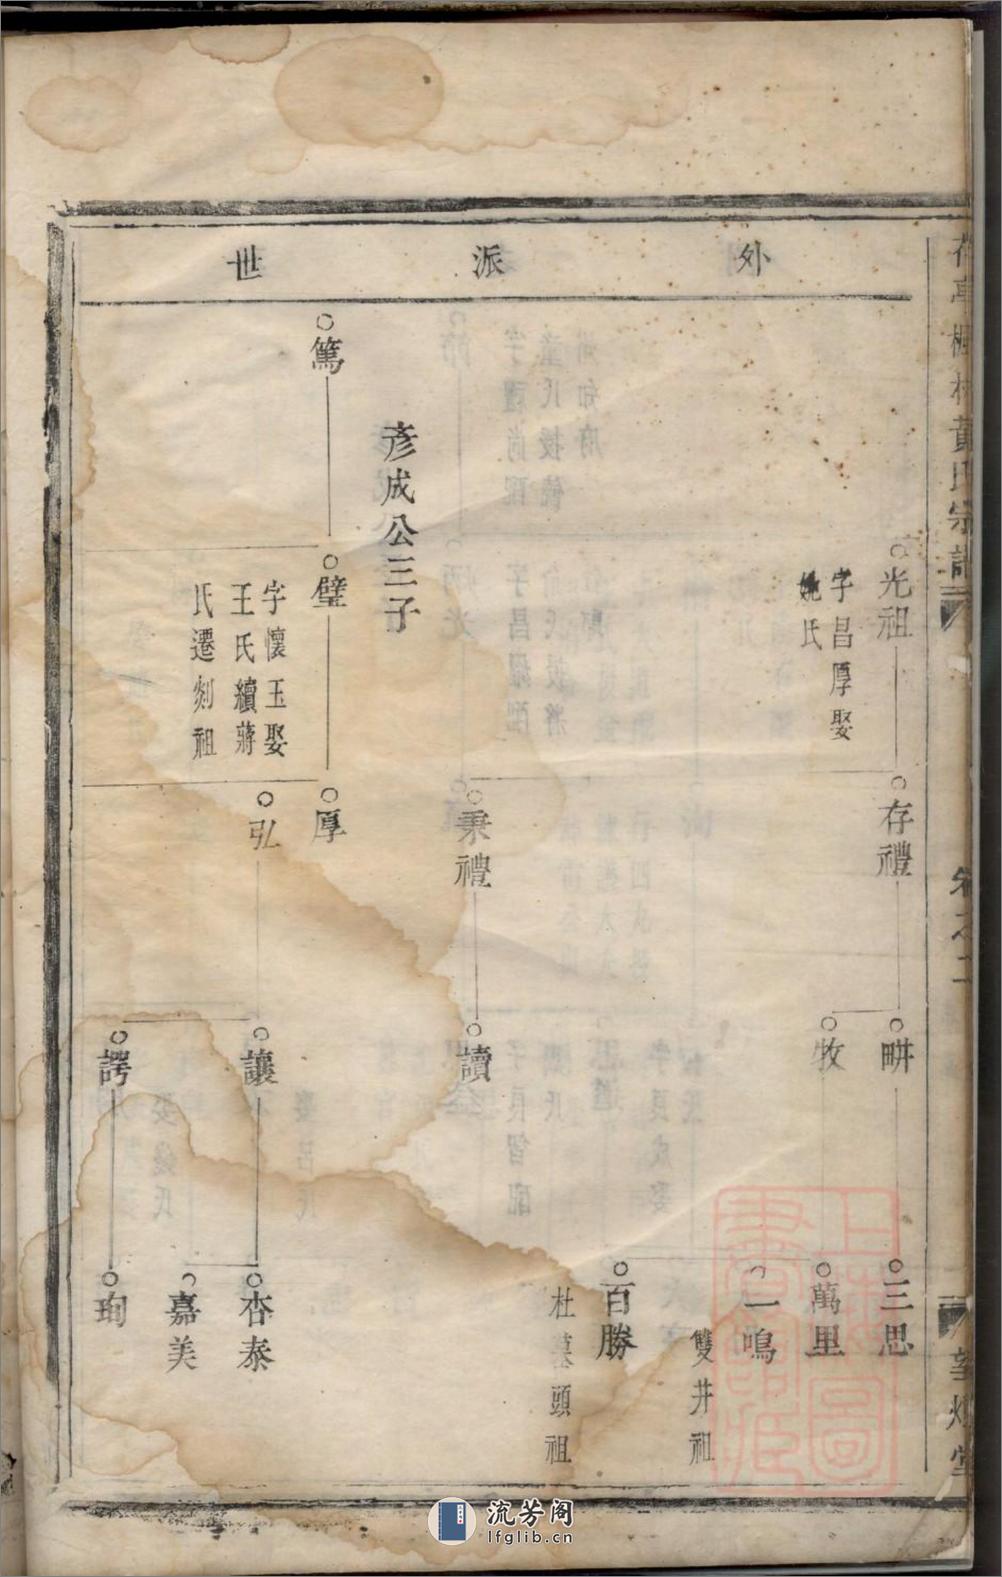 外派世
光祖
字昌厚娶
姚氏
存禮
秉禮
畊
牧
讀
三思
萬里
一鳴
雙井祖
百勝
杜墓頭祖
彦成公三子
篤
璧
字懷玉娶
王氏續蔣
氏遷剡祖
厚
弘
讓
諤
杏泰
嘉美
珣
黃氏宗譜
卷之二
流芳阁
lfglib.cn